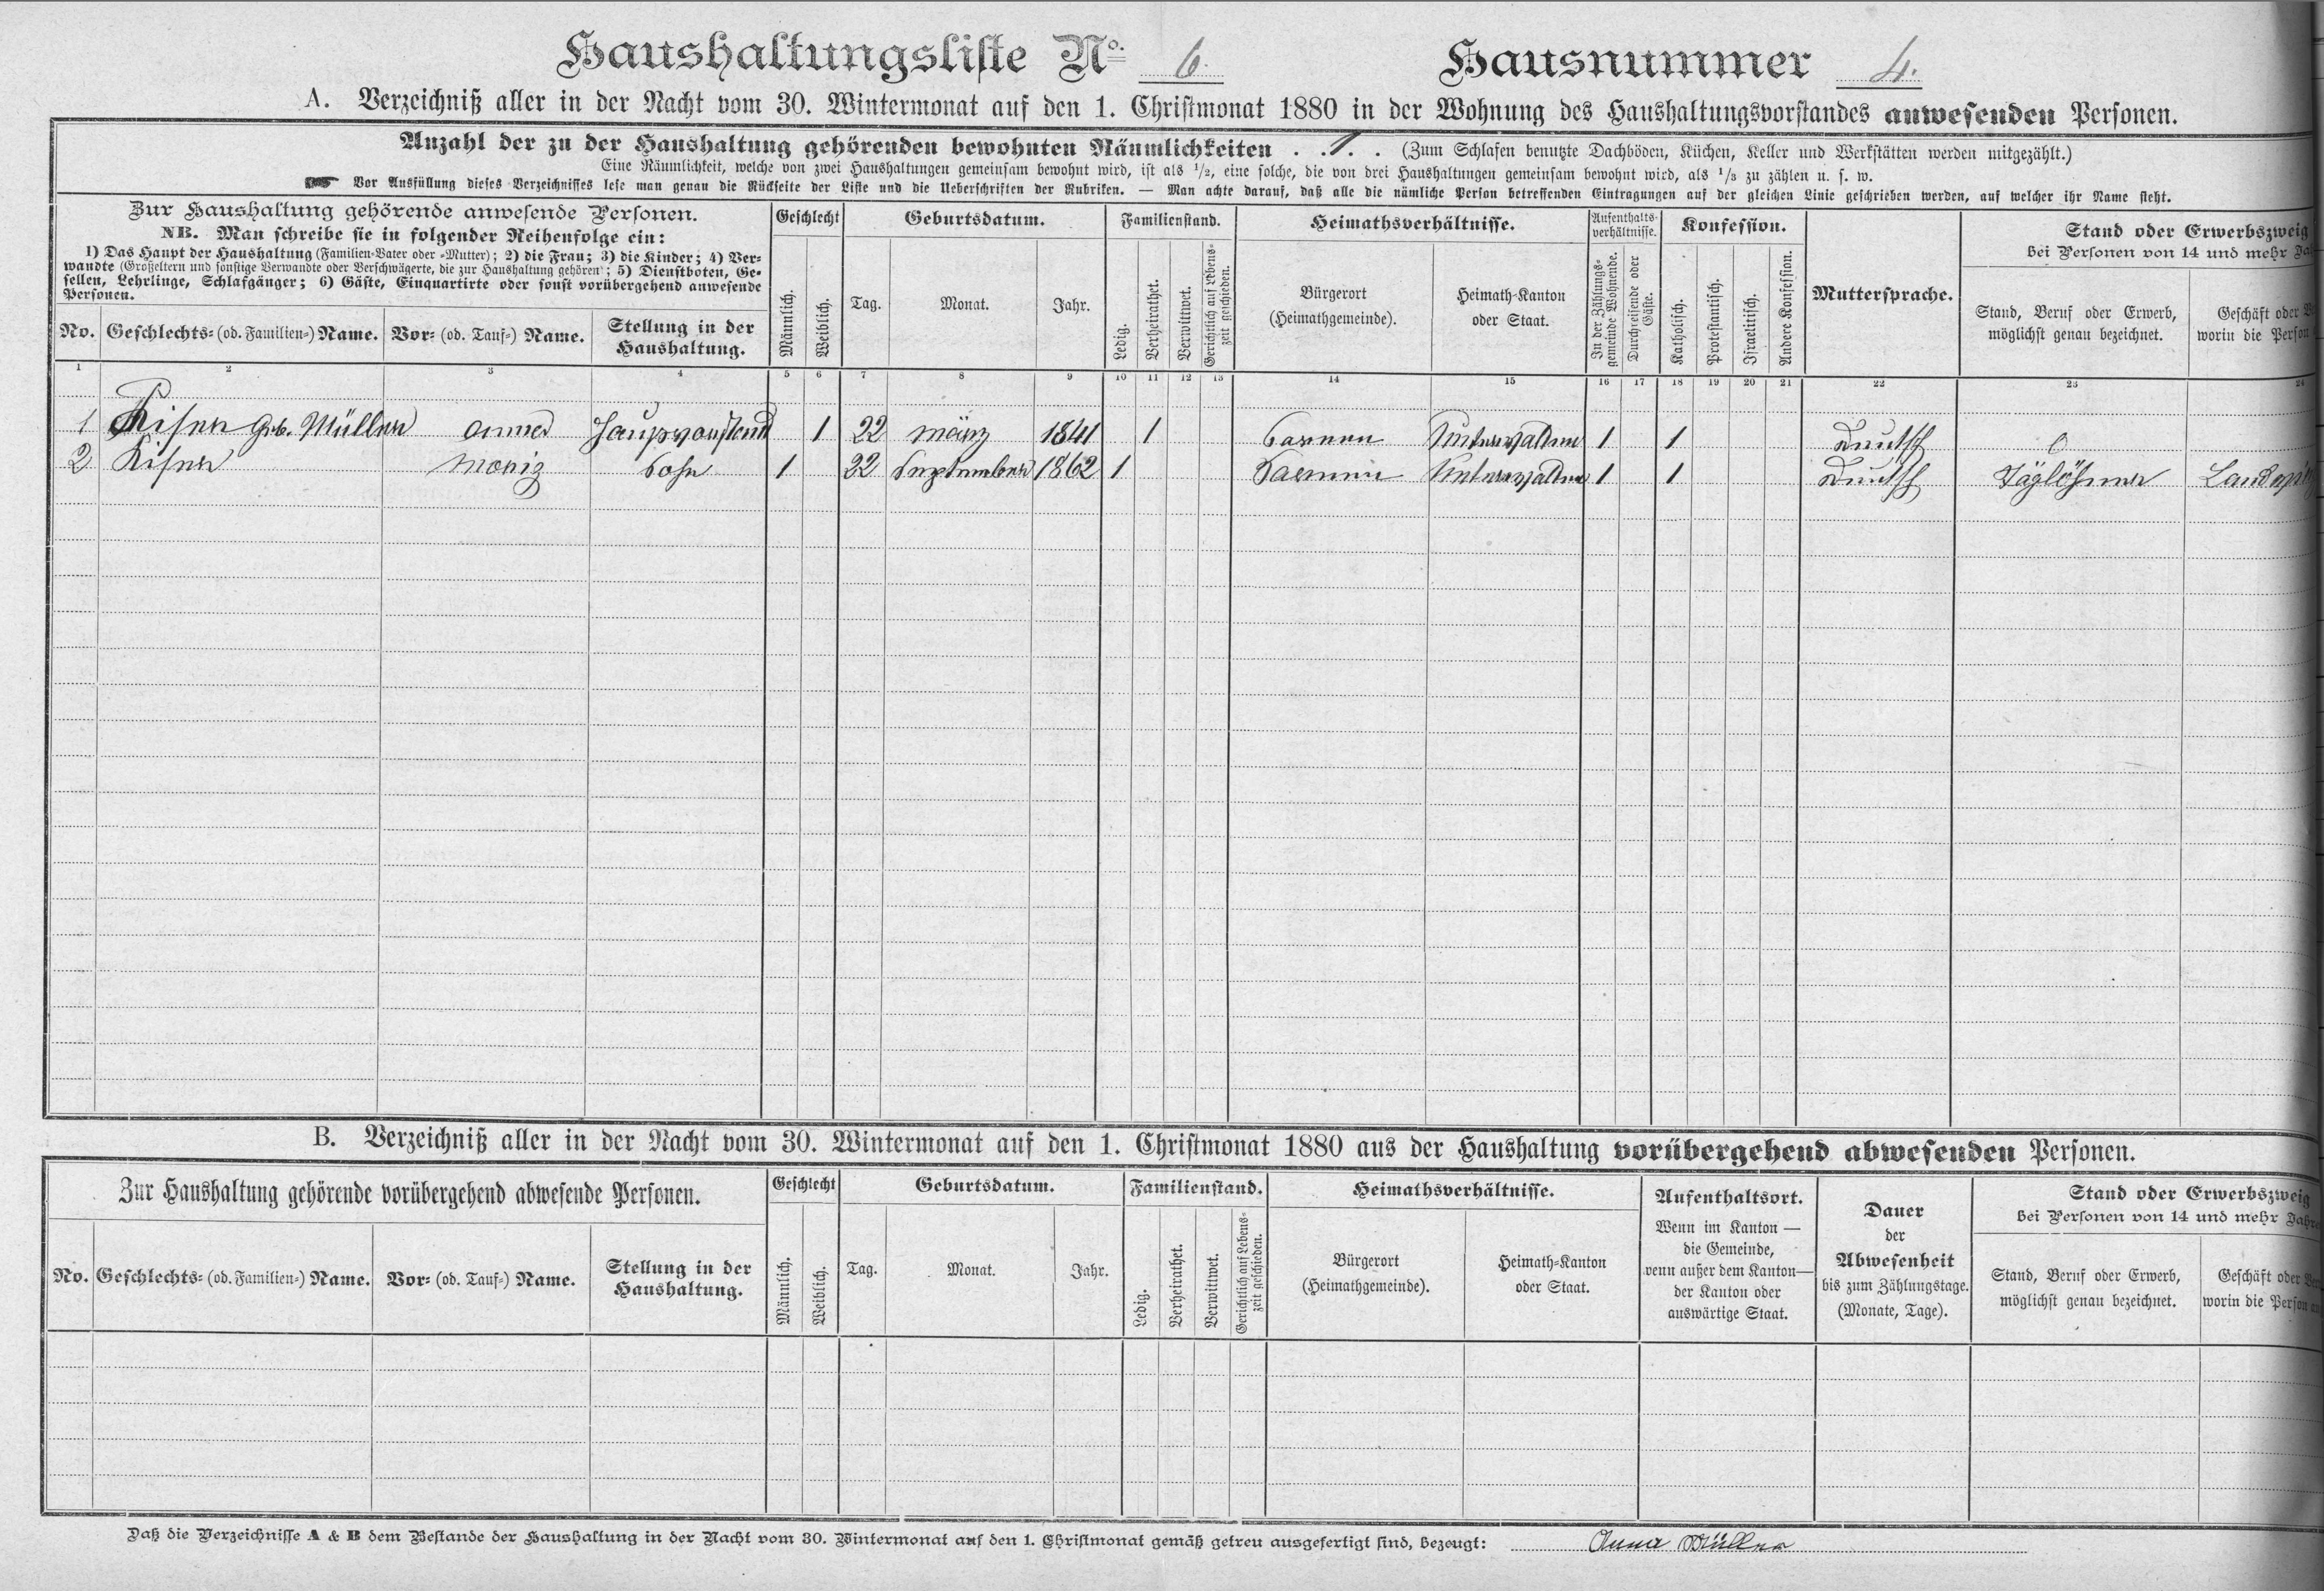 Haushaltungsliste No. 6. Hausnummer 4.
A. Verzeichniß aller in der Nacht vom 30. Wintermonat auf den 1. Christmonat 1880 in der Wohnung des Haushaltungsvorstandes anwesenden Personen.
Anzahl der zu der Haushaltung gehörenden bewohnten Räumlichkeiten . . 1 . . (Zum Schlafen benutzte Dachböden, Küchen, Keller und Werkstätten werden mitgezählt.)
Eine Räumlichkeit, welche von zwei Haushaltungen gemeinsam bewohnt wird, ist als 1/2, eine solche, die von drei Haushaltungen gemeinsam bewohnt wird, als 1/3 zu zählen u. s. w.
Vor Ausfüllung dieses Verzeichnisses lese man genau die Rückseite der Liste und die Ueberschriften der Rubriken. — Man achte darauf, daß alle die nämliche Person betreffenden Eintragungen auf der gleichen Linie geschrieben werden, auf welcher ihr Name steht.
Zur Haushaltung gehörende anwesende Personen.
NB. Man schreibe sie in folgender Reihenfolge ein:
1) Das Haupt der Haushaltung (Familien-Vater oder -Mutter); 2) die Frau; 3) die Kinder; 4) Ver-
wandte (Großeltern und sonstige Verwandte oder Verschwägerte, die zur Haushaltung gehören); 5) Dienstboten, Ge-
sellen, Lehrlinge, Schlafgänger; 6) Gäste, Einquartirte oder sonst vorübergehend anwesende
Personen.
No. Geschlechts- (od. Familien-) Name. Vor- (od. Tauf-) Name. Stellung in der
Haushaltung.
Geschlecht
Männlich. Weiblich.
Geburtsdatum.
Tag. Monat. Jahr.
Familienstand.
Ledig. Verheirathet. Verwittwet. Gerichtlich auf Lebens-
zeit geschieden.
Heimathsverhältnisse.
Bürgerort
(Heimathgemeinde).
Heimath-Kanton
oder Staat.
Aufenthalts-
verhältnisse.
In der Zählungs-
gemeinde Wohnende.
Durchreisende oder
Gäste.
Konfession.
Katholisch. Protestantisch. Israelitisch. Andere Konfession.
Muttersprache.
Stand oder Erwerbszweig
bei Personen von 14 und mehr
Stand, Beruf oder Erwerb,
möglichst genau bezeichnet.
Geschäft oder
worin die Person
1 2 3 4 5 6 7 8 9 10 11 12 13 14 15 16 17 18 19 20 21 22 23 24
1 Kiser geb. Müller anna Haupvorstand 1 22 märz 1841 1 Sarnen Unterwalden 1 1 Deutsch
2 Kiser moriz Sohn 1 22 September 1862 1 Sarnen Unterwalden 1 1 Deutsch Taglöhner
B. Verzeichniß aller in der Nacht vom 30. Wintermonat auf den 1. Christmonat 1880 aus der Haushaltung vorübergehend abwesenden Personen.
Zur Haushaltung gehörende vorübergehend abwesende Personen.
No. Geschlechts- (od. Familien-) Name. Vor- (od. Tauf-) Name. Stellung in der
Haushaltung.
Geschlecht
Männlich. Weiblich.
Geburtsdatum.
Tag. Monat. Jahr.
Familienstand.
Ledig. Verheirathet. Verwittwet. Gerichtlich auf Lebens-
zeit geschieden.
Heimathsverhältnisse.
Bürgerort
(Heimathgemeinde).
Heimath-Kanton
oder Staat.
Aufenthaltsort.
Wenn im Kanton —
die Gemeinde,
wenn außer dem Kanton—
der Kanton oder
auswärtige Staat.
Dauer
der
Abwesenheit
bis zum Zählungstage.
(Monate, Tage).
Stand oder Erwerbszweig
bei Personen von 14 und mehr
Stand, Beruf oder Erwerb,
möglichst genau bezeichnet.
Geschäft oder
worin die Person
Daß die Verzeichnisse A & B dem Bestande der Haushaltung in der Nacht vom 30. Wintermonat auf den 1. Christmonat gemäß getreu ausgefertigt sind, bezeugt: Anna Müller